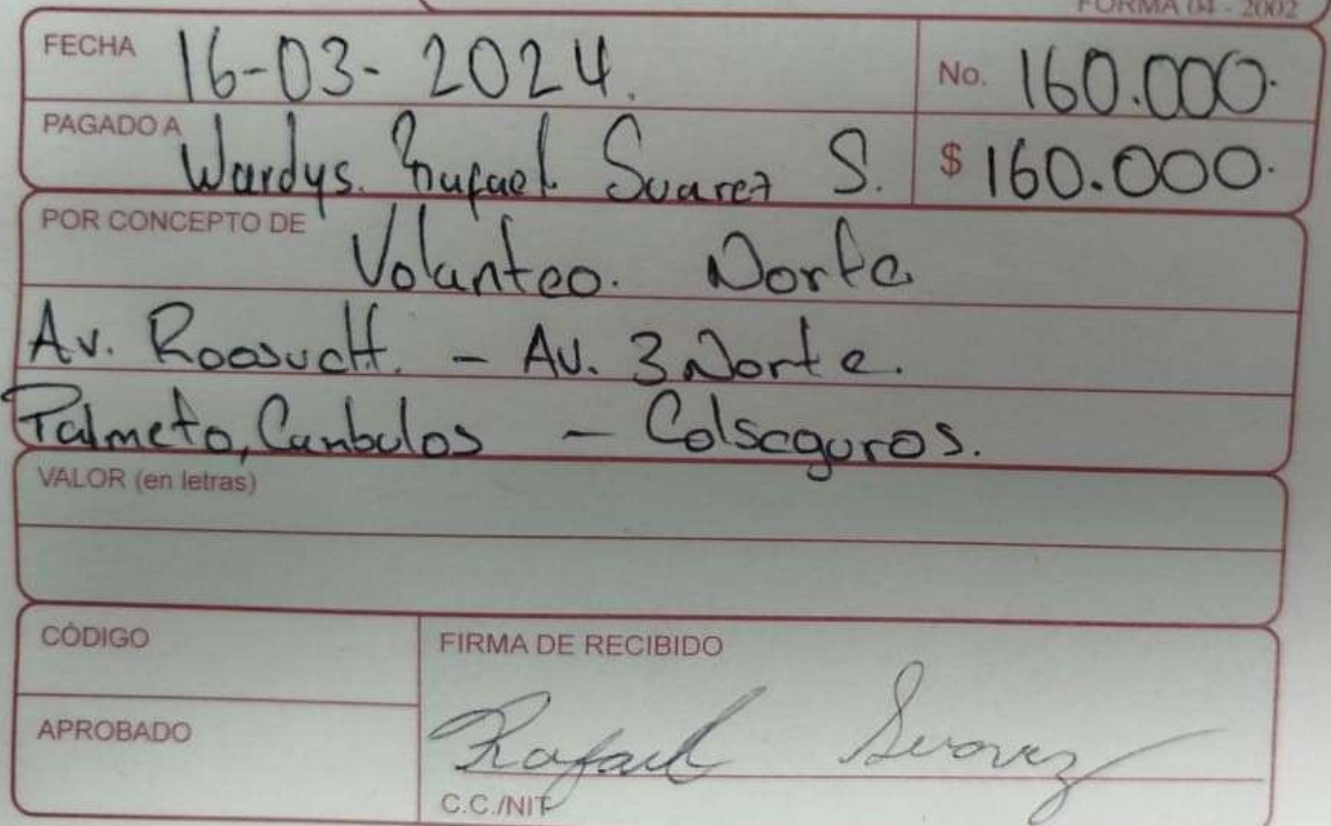 FORMA 04 - 2002
FECHA 16-03-2024. No. 160.000.
PAGADO A Wardys. Rafael Suarez S. $ 160.000.
POR CONCEPTO DE Volanteo. Norte
Av. Roosvelt. - Av. 3 Norte.
Palmeto, Cambulos - Colseguros.
VALOR (en letras)
CÓDIGO FIRMA DE RECIBIDO
APROBADO Rafael Suarez
C.C./NIT